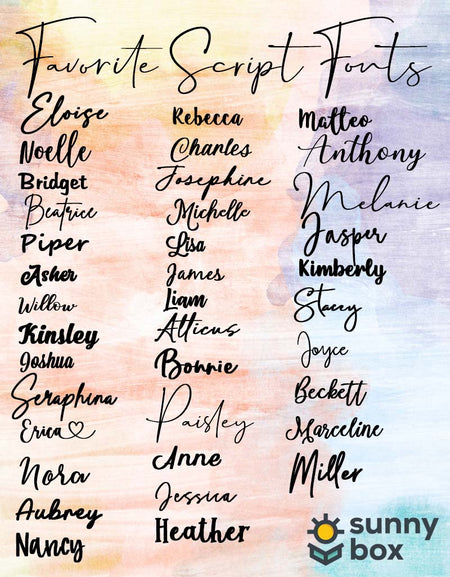 Favorite Script Fonts
Eloise
Noelle
Bridget
Beatrice
Piper
Asher
Willow
Kinsley
Joshua
Seraphina
Erica
Nora
Aubrey
Nancy
Rebecca
Charles
Josephine
Michelle
Lisa
James
Liam
Atticus
Bonnie
Paisley
Anne
Jessica
Heather
Matteo
Anthony
Melanie
Jasper
Kimberly
Stacey
Joyce
Beckett
Marceline
Miller
sunny
box